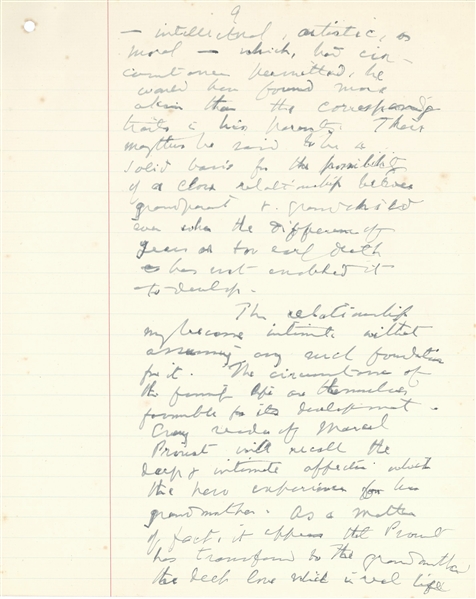 9
— intellectual, artistic, or
moral — which, had cir-
cumstances permitted, he
would have found more
akin than the corresponding
traits in his parents. There
may thus be said to be a
solid basis for the possibility
of a close relationship between
grandparent & grandchild
even when the difference of
years or too early death
has not enabled it
to develop.
The relationship
may become intimate without
assuming any such foundation
for it. The circumstances of
the family life are themselves
favourable to its development.
Every reader of Marcel
Proust will recall the
deep & intimate affection which
the hero experiences for his
grandmother. As a matter
of fact, it appears that Proust
has transferred to the grandmother
the deep love which in real life